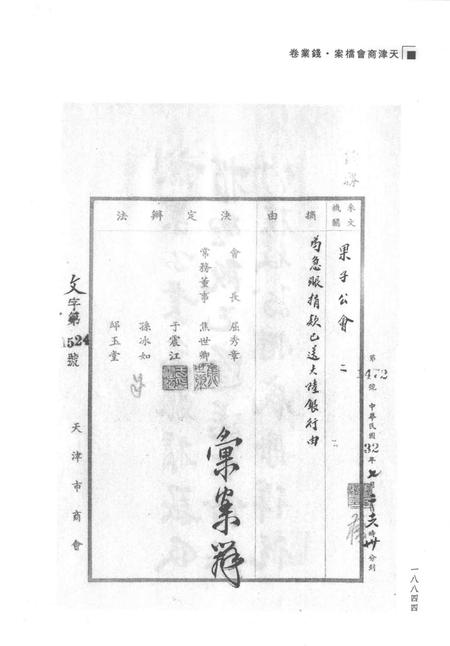 天津商會檔案·錢業卷
第1472號 中華民國32年七月二十六 時 分到
來文機關
果子公會 二
摘由
為急賑捐款已送大陸銀行由
決定辦法
會長 屈秀章
常務董事 焦世卿
于震江
孫冰如
邸玉堂
彙案辦
文字第1524號
天津市商會
一八八四四